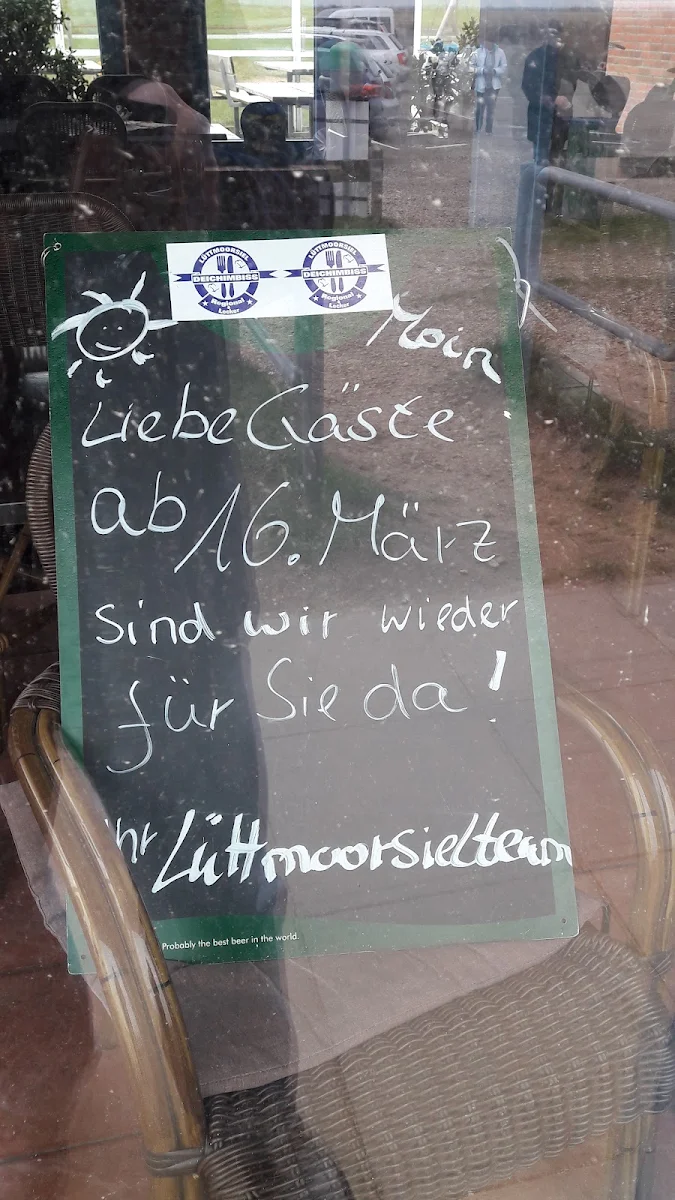 LÜTTMOORSIEL LÜTTMOORSIEL
DEICHIMBISS DEICHIMBISS
Regional Regional
& Lecker & Lecker
Moin
Liebe Gäste
ab 16. März
sind wir wieder
für Sie da!
Ihr Lüttmoorsielteam
Probably the best beer in the world.